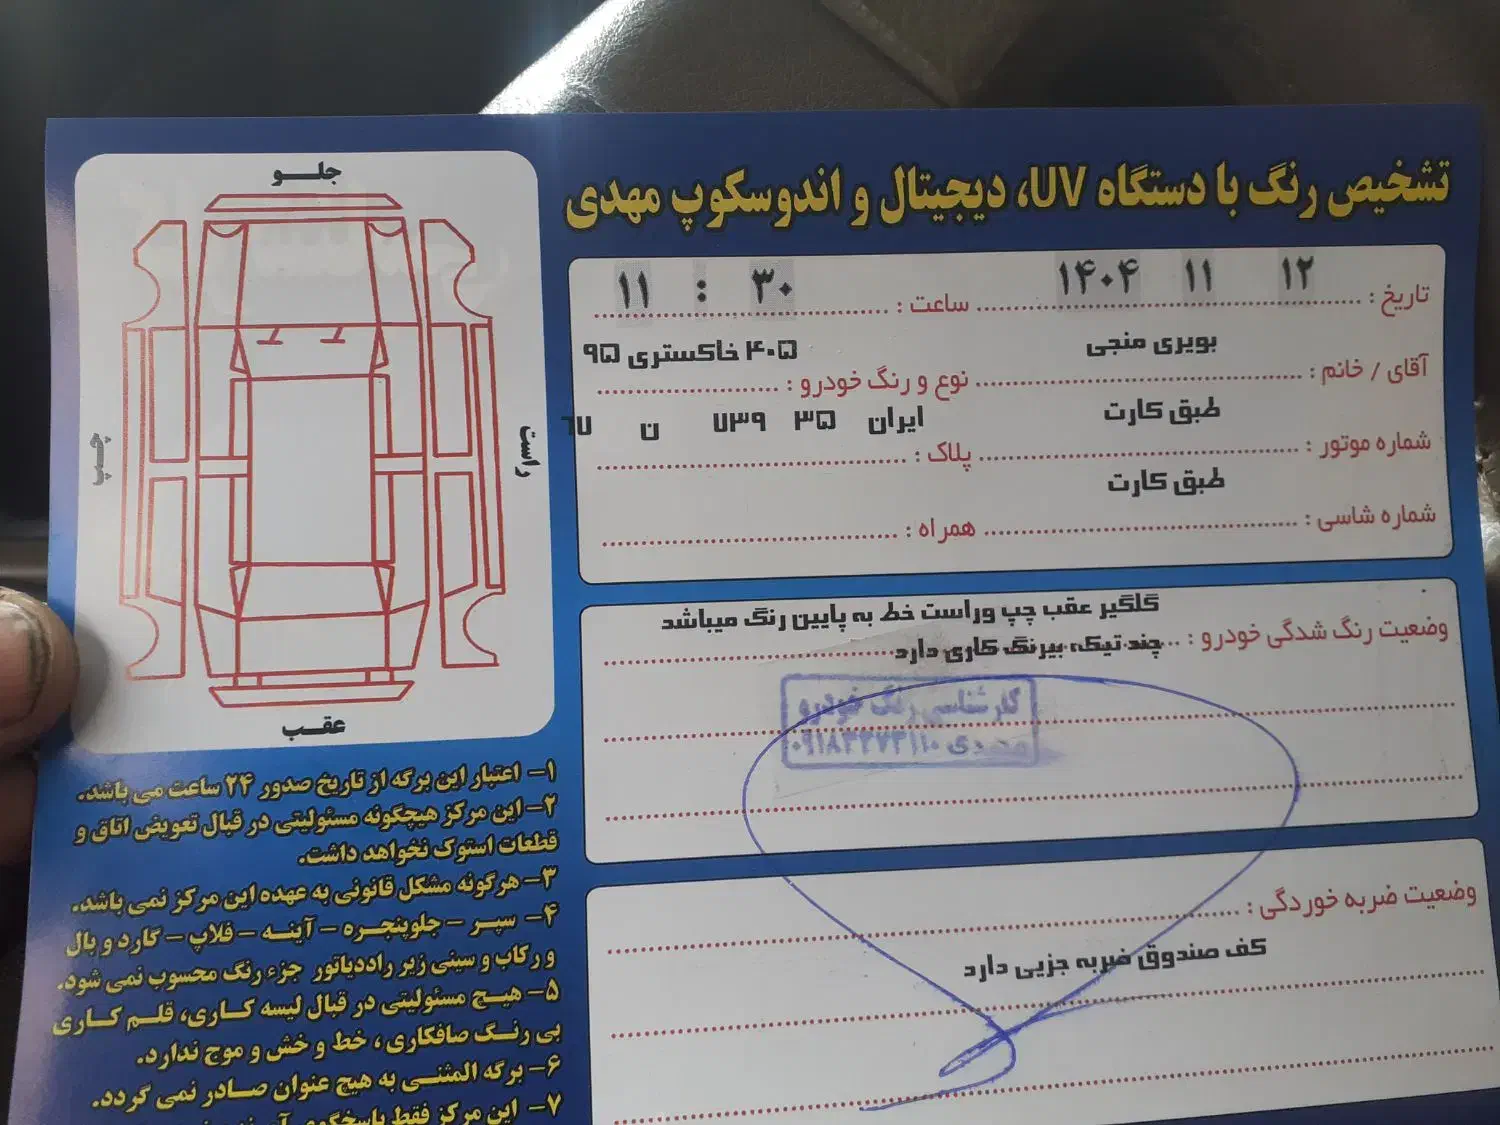 تشخیص رنگ با دستگاه UV، دیجیتال و اندوسکوپ مهدی
تاریخ : ۱۲ ۱۱ ۱۴۰۴ ساعت : ۳۰ : ۱۱
آقای / خانم : بویری منجی نوع و رنگ خودرو : ۴۰۵ خاکستری ۹۵
شماره موتور : طبق کارت پلاک : ایران ۳۵ ۷۳۹ ن ۶۷
شماره شاسی : طبق کارت همراه :
وضعیت رنگ شدگی خودرو : گلگیر عقب چپ وراست خط به پایین رنگ میباشد
چند تیکه بیرنگ کاری دارد
کارشناسی رنگ خودرو
مهدی ۰۹۱۸۳۲۷۳۱۱۰
وضعیت ضربه خوردگی :
کف صندوق ضربه جزیی دارد
جلــو
راست
چــپ
عقــب
۱- اعتبار این برگه از تاریخ صدور ۲۴ ساعت می باشد.
۲- این مرکز هیچگونه مسئولیتی در قبال تعویض اتاق و
قطعات استوک نخواهد داشت.
۳- هرگونه مشکل قانونی به عهده این مرکز نمی باشد.
۴- سپر - جلوپنجره - آینه - فلاپ - گارد و بال
و رکاب و سینی زیر راددیاتور جزء رنگ محسوب نمی شود.
۵- هیچ مسئولیتی در قبال لیسه کاری، قلم کاری
بی رنگ صافکاری ، خط و خش و موج ندارد.
۶- برگه المثنی به هیچ عنوان صادر نمی گردد.
۷- این مرکز فقط پاسخگوی